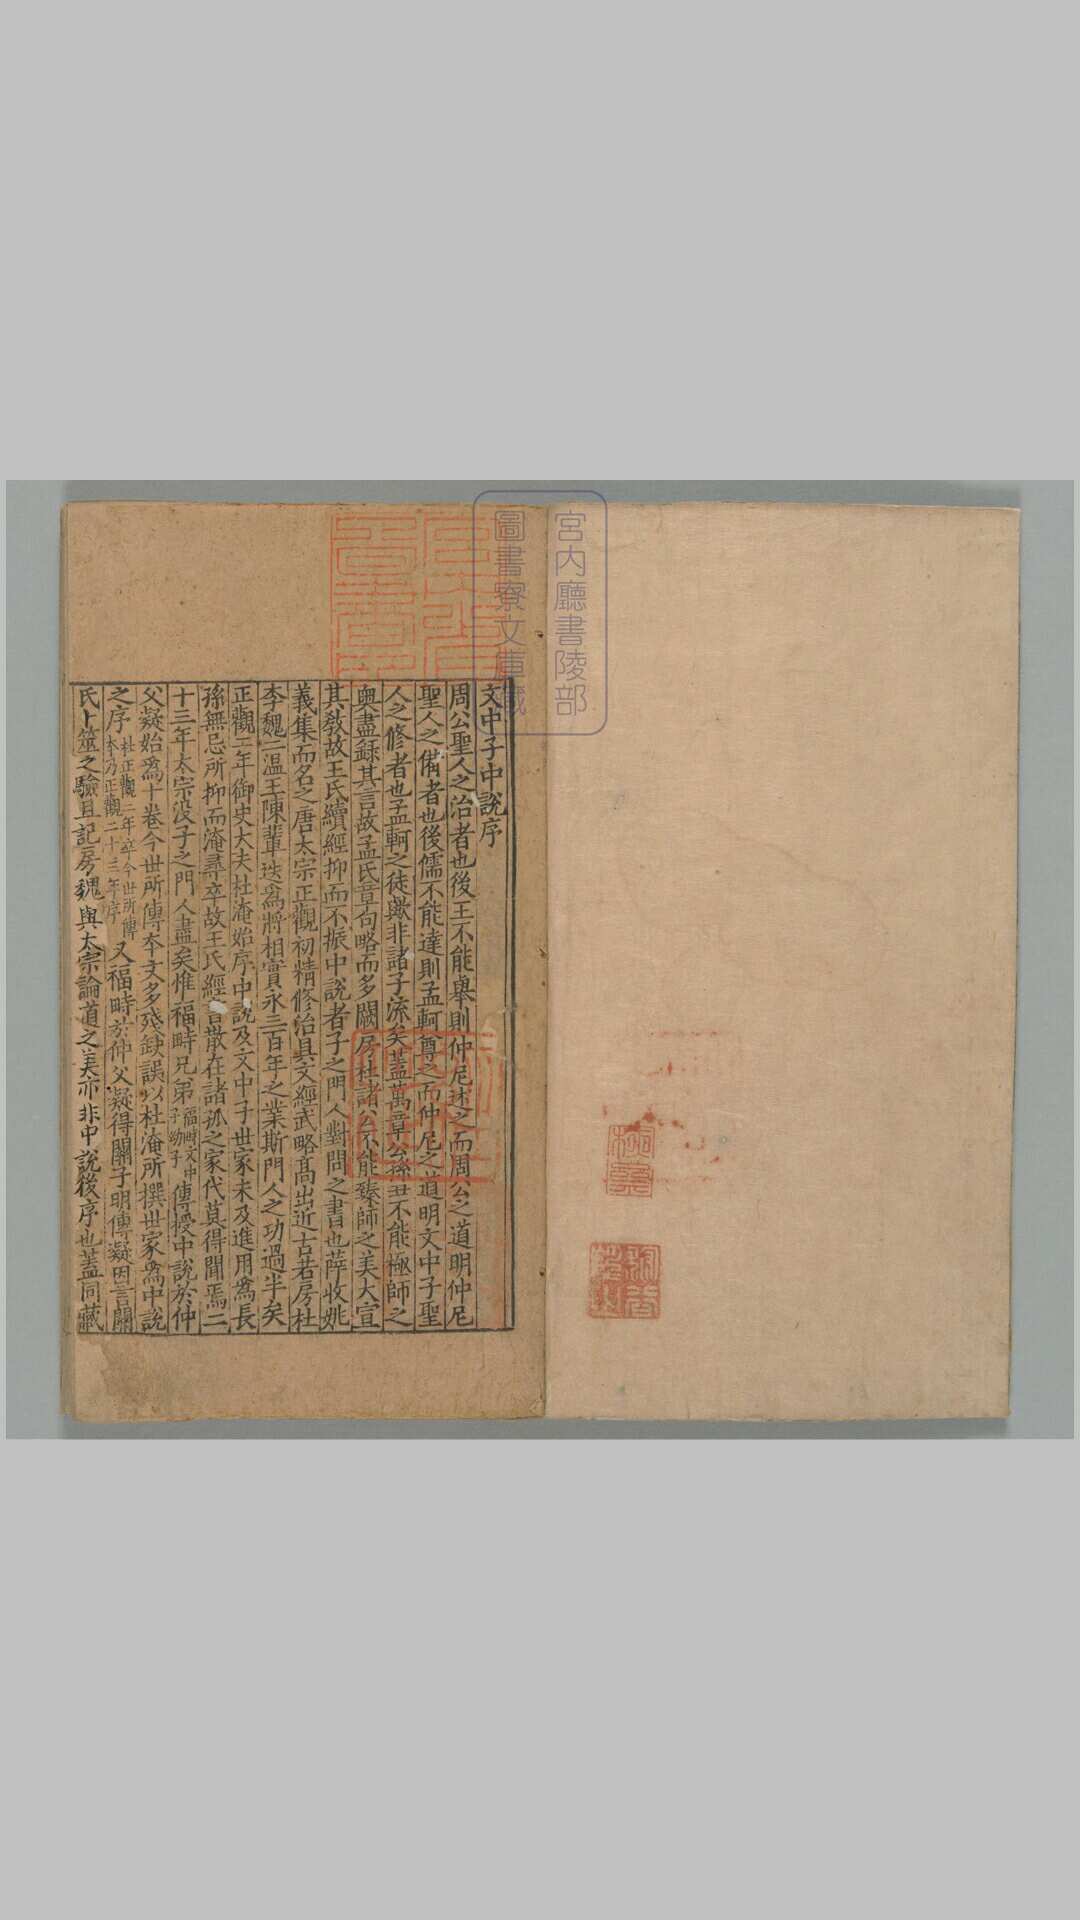 宮内廳書陵部
圖書寮文庫蔵
文中子中說序
周公聖人之治者也後王不能舉則仲尼述之而周公之道明仲尼
聖人之備者也後儒不能達則孟軻尊之而仲尼之道明文中子聖
人之修者也孟軻之徒歟非諸子流矣蓋萬章公孫丑不能極師之
奧盡錄其言故孟氏章句略而多闕房杜諸公不能臻師之美大宣
其敎故王氏續經抑而不振中說者子之門人對問之書也薛收姚
義集而名之唐太宗正觀初精修治具文經武略髙出近古若房杜
李魏二温王陳輩迭爲將相實永三百年之業斯門人之功過半矣
正觀二年御史大夫杜淹始序中說及文中子世家未及進用爲長
孫無忌所抑而淹尋卒故王氏經言散在諸孤之家代莫得聞焉二
十三年太宗没子之門人盡矣惟福畤兄弟福畤文中子幼子傳授中說於仲
父凝始爲十卷今世所傳夲文多殘缺誤以杜淹所撰世家爲中說
之序杜正觀二年卒今世所傳夲乃正觀二十三年序又福畤於仲父凝得關子明傳凝因言關
氏卜筮之驗且記房魏與太宗論道之美亦非中說後序也蓋同藏